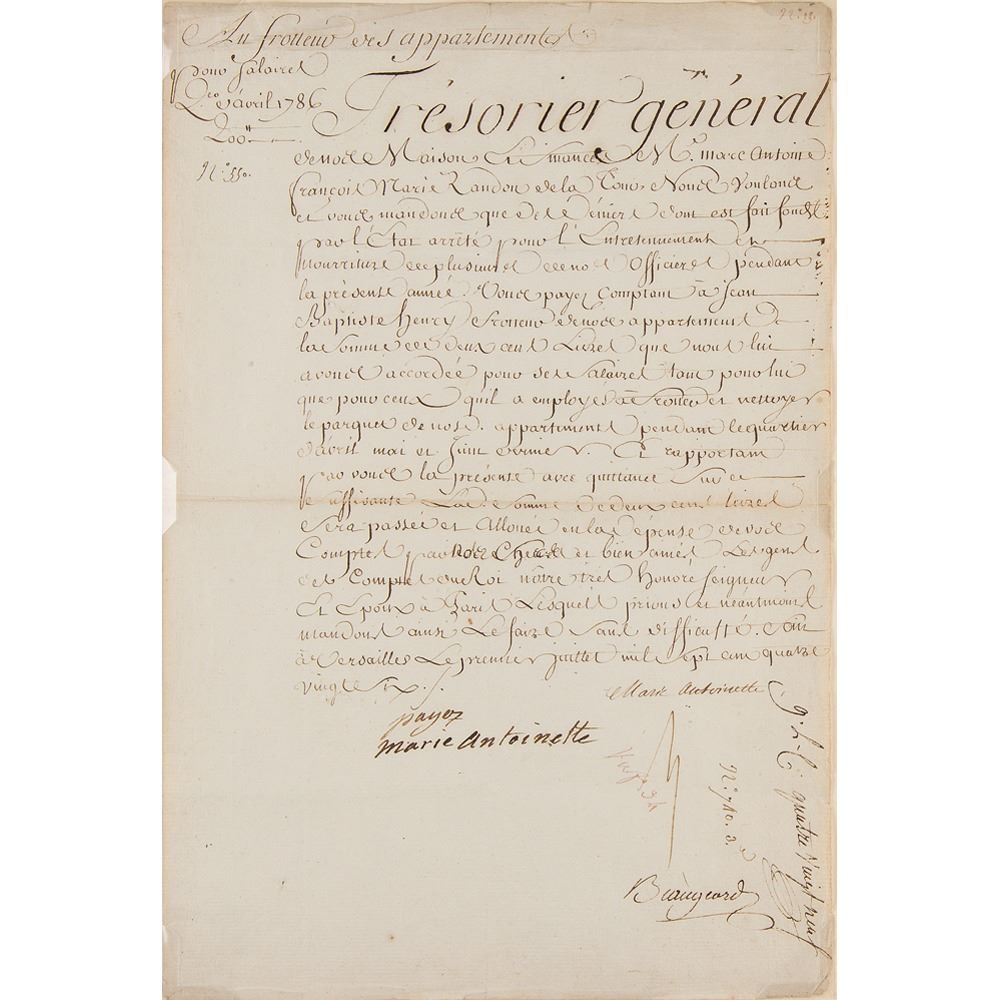 N.° 13.
Au frotteur des appartements
pour Salaires
Q.er d'avril 1786
200.tt
N.° 550.
Trésorier général
de notre Maison et finances M.e marc Antoine
françois Marie Randon de la Tour. Nous Voulons
et vous mandons que des deniers dont est fait fonds
par l'État arrêté pour l'Entretennement et
nourriture de plusieurs de nos Officiers pendant
la présente année. Vous payez Comptant à Jean
Baptiste Henry frotteur de nos appartements
la Somme de deux cent Livres que nous lui
avons accordée pour ses Salaires tant pour lui
que pour ceux qu'il a employés à Frotter et nettoyer
le parquet de nosd. appartements pendant le quartier
d'avril mai et Juin dernier. Et rapportant
par vous la présente avec quittance Sur ce
suffisante Lad. Somme de deux cent livres
Sera passée et Allouée en la dépense de vos
Comptes par nos Chers et bien amés Les gens
des Comptes du Roi nôtre très Honoré Seigneur
Et Epoux à Paris Lesquels prions et néantmoins
mandons ainsi Le faire Sans difficulté. Fait
à Versailles Le premier juillet mil Sept cent quatre
vingt Six./.
Marie Antoinette
payez
marie Antoinette
N.° 710. 3.
quatre Vingt neuf
Beaugeard